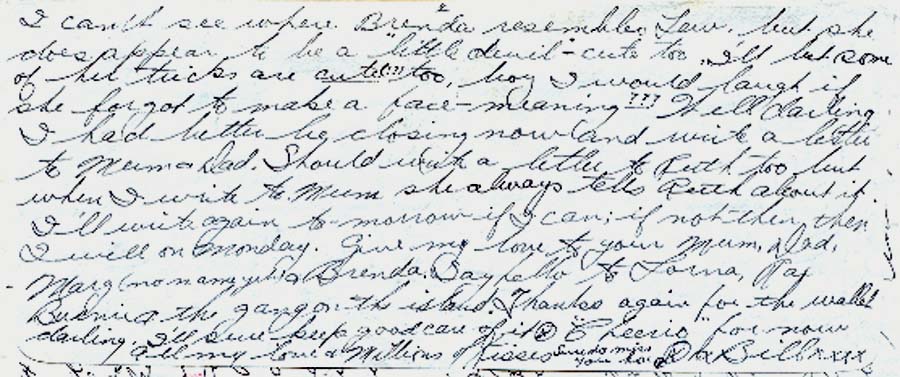 I can't see where Brenda resembles Lew, but she
does appear to be a "little devil" - cute too. I'll bet some
of her tricks are cute(!!) too, boy I would laugh if
she forgot to make a face - meaning??? Well darling
I had better be closing now (and write a letter
to Mum & Dad. Should write a letter to Ruth too but
when I write to Mum she always tells Ruth about it.
I'll write again to-morrow if I can; if not then, then
I will on Monday. Give my love to your Mum, Dad,
Marg (no name yet) & Brenda. Say hello to Lorna, Ray
& the gang on the island. Thanks again for the wallet
darling, I'll sure keep good care of it "Cheerio" for now
All my love & Millions of Kisses Sure do miss
you Bill xxxx